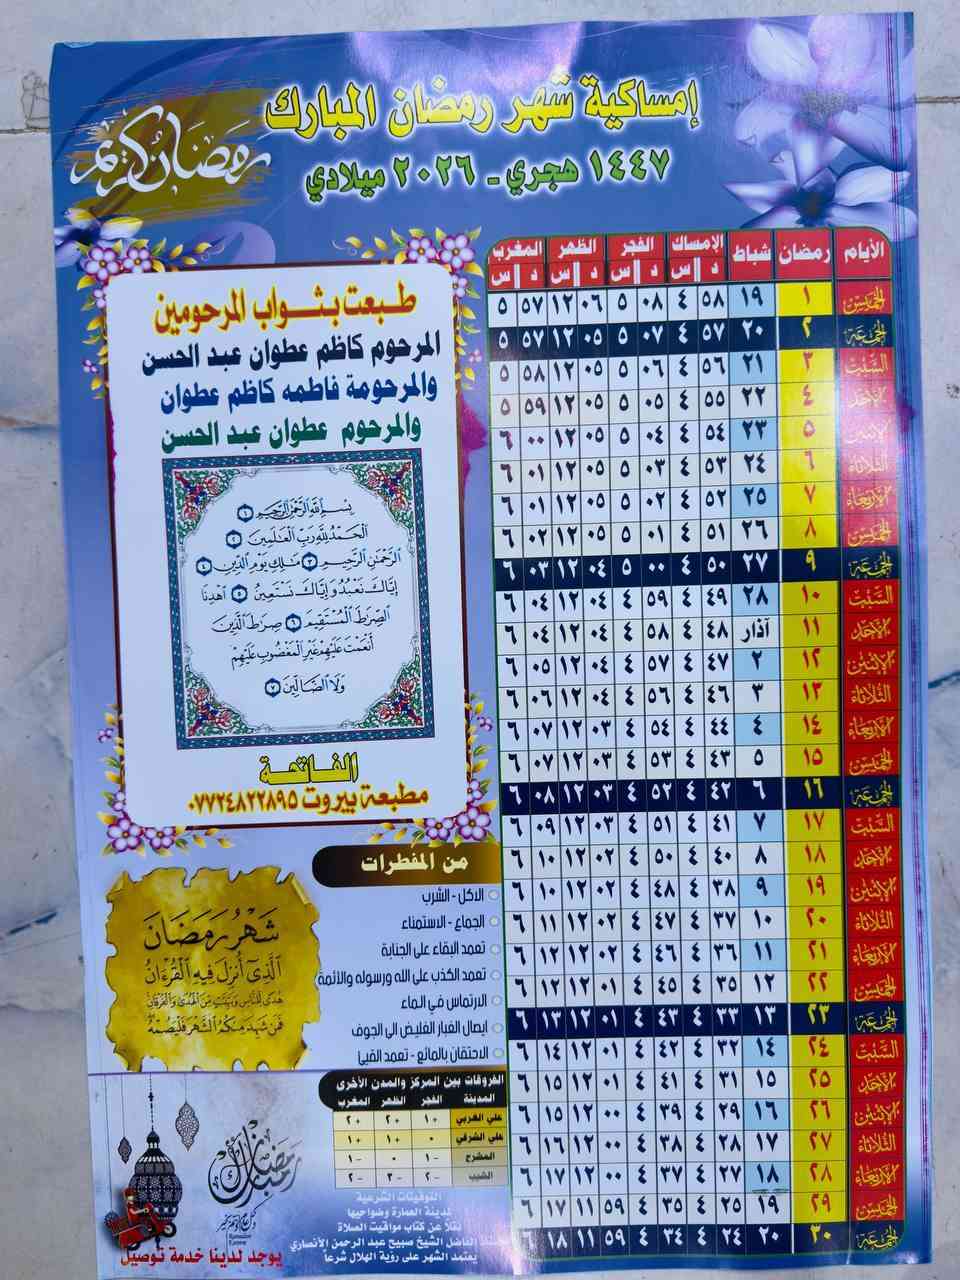 إمساكية شهر رمضان المبارك
١٤٤٧ هجري - ٢٠٢٦ ميلادي
رمضان كريم
طبعت بثواب المرحومين
المرحوم كاظم عطوان عبد الحسن
والمرحومة فاطمه كاظم عطوان
والمرحوم عطوان عبد الحسن
بِسْمِ اللَّهِ الرَّحْمَٰنِ الرَّحِيمِ ١
الْحَمْدُ لِلَّهِ رَبِّ الْعَالَمِينَ ٢
الرَّحْمَٰنِ الرَّحِيمِ ٣ مَالِكِ يَوْمِ الدِّينِ ٤
إِيَّاكَ نَعْبُدُ وَإِيَّاكَ نَسْتَعِينُ ٥ اهْدِنَا
الصِّرَاطَ الْمُسْتَقِيمَ ٦ صِرَاطَ الَّذِينَ
أَنْعَمْتَ عَلَيْهِمْ غَيْرِ الْمَغْضُوبِ عَلَيْهِمْ
وَلَا الضَّالِّينَ ٧
الفاتحة
مطبعة بيروت ٠٧٧٢٤٨٢٢٨٩٥
الأيام رمضان شباط الإمساك الفجر الظهر المغرب
د س د س د س د س
الخميس ١ ١٩ ٥٨ ٤ ٠٨ ٥ ٠٦ ١٢ ٥٧ ٥
الجمعة ٢ ٢٠ ٥٧ ٤ ٠٧ ٥ ٠٥ ١٢ ٥٧ ٥
السبت ٣ ٢١ ٥٦ ٤ ٠٦ ٥ ٠٥ ١٢ ٥٨ ٥
الأحد ٤ ٢٢ ٥٥ ٤ ٠٥ ٥ ٠٥ ١٢ ٥٩ ٥
الإثنين ٥ ٢٣ ٥٤ ٤ ٠٤ ٥ ٠٥ ١٢ ٠٠ ٦
الثلاثاء ٦ ٢٤ ٥٣ ٤ ٠٣ ٥ ٠٥ ١٢ ٠١ ٦
الأربعاء ٧ ٢٥ ٥٢ ٤ ٠٢ ٥ ٠٥ ١٢ ٠١ ٦
الخميس ٨ ٢٦ ٥١ ٤ ٠١ ٥ ٠٥ ١٢ ٠٢ ٦
الجمعة ٩ ٢٧ ٥٠ ٤ ٠٠ ٥ ٠٤ ١٢ ٠٣ ٦
السبت ١٠ ٢٨ ٤٩ ٤ ٥٩ ٤ ٠٤ ١٢ ٠٤ ٦
الأحد ١١ آذار ٤٨ ٤ ٥٨ ٤ ٠٤ ١٢ ٠٤ ٦
الإثنين ١٢ ٢ ٤٧ ٤ ٥٧ ٤ ٠٤ ١٢ ٠٥ ٦
الثلاثاء ١٣ ٣ ٤٦ ٤ ٥٦ ٤ ٠٤ ١٢ ٠٦ ٦
الأربعاء ١٤ ٤ ٤٤ ٤ ٥٤ ٤ ٠٣ ١٢ ٠٧ ٦
الخميس ١٥ ٥ ٤٣ ٤ ٥٣ ٤ ٠٣ ١٢ ٠٧ ٦
الجمعة ١٦ ٦ ٤٢ ٤ ٥٢ ٤ ٠٣ ١٢ ٠٨ ٦
السبت ١٧ ٧ ٤١ ٤ ٥١ ٤ ٠٣ ١٢ ٠٩ ٦
الأحد ١٨ ٨ ٤٠ ٤ ٥٠ ٤ ٠٢ ١٢ ١٠ ٦
الإثنين ١٩ ٩ ٣٨ ٤ ٤٨ ٤ ٠٢ ١٢ ١٠ ٦
الثلاثاء ٢٠ ١٠ ٣٧ ٤ ٤٧ ٤ ٠٢ ١٢ ١١ ٦
الأربعاء ٢١ ١١ ٣٦ ٤ ٤٦ ٤ ٠٢ ١٢ ١١ ٦
الخميس ٢٢ ١٢ ٣٥ ٤ ٤٥ ٤ ٠١ ١٢ ١٢ ٦
الجمعة ٢٣ ١٣ ٣٣ ٤ ٤٣ ٤ ٠١ ١٢ ١٣ ٦
السبت ٢٤ ١٤ ٣٢ ٤ ٤٢ ٤ ٠١ ١٢ ١٤ ٦
الأحد ٢٥ ١٥ ٣١ ٤ ٤١ ٤ ٠١ ١٢ ١٥ ٦
الإثنين ٢٦ ١٦ ٢٩ ٤ ٣٩ ٤ ٠٠ ١٢ ١٥ ٦
الثلاثاء ٢٧ ١٧ ٢٨ ٤ ٣٨ ٤ ٠٠ ١٢ ١٦ ٦
الأربعاء ٢٨ ١٨ ٢٧ ٤ ٣٧ ٤ ٠٠ ١٢ ١٧ ٦
الخميس ٢٩ ١٩ ٢٥ ٤ ٣٥ ٤ ٥٩ ١١ ١٧ ٦
الجمعة ٣٠ ٢٠ ٢٤ ٤ ٣٤ ٤ ٥٩ ١١ ١٨ ٦
من المفطرات
الاكل - الشرب
الجماع - الاستمناء
تعمد البقاء على الجنابة
تعمد الكذب على الله ورسوله والائمة
الارتماس في الماء
ايصال الغبار الغليض الى الجوف
الاحتقان بالمائع - تعمد القيئ
شَهْرُ رَمَضَانَ
الَّذِي أُنزِلَ فِيهِ الْقُرْءَانُ
هُدًى لِّلنَّاسِ وَبَيِّنَاتٍ مِّنَ الْهُدَىٰ وَالْفُرْقَانِ
فَمَن شَهِدَ مِنكُمُ الشَّهْرَ فَلْيَصُمْهُ
الفروقات بين المركز والمدن الأخرى
المدينة الفجر الظهر المغرب
علي الغربي ١٠ ٢٠ ٢٠
علي الشرقي ٠ ١٠ ١٠
المشرح ١- ٠ ١-
الشيب ٢- ٣ ٢-
التوقيتات الشرعية
لمدينة العمارة وضواحيها
نقلاً عن كتاب مواقيت الصلاة
الفاضل الشيخ صبيح عبد الرحمن الأنصاري
يعتمد الشهر على رؤية الهلال شرعاً
رمضان مبارك
وكل عام وأنتم بخير
Ramadan
Kareem
يوجد لدينا خدمة توصيل